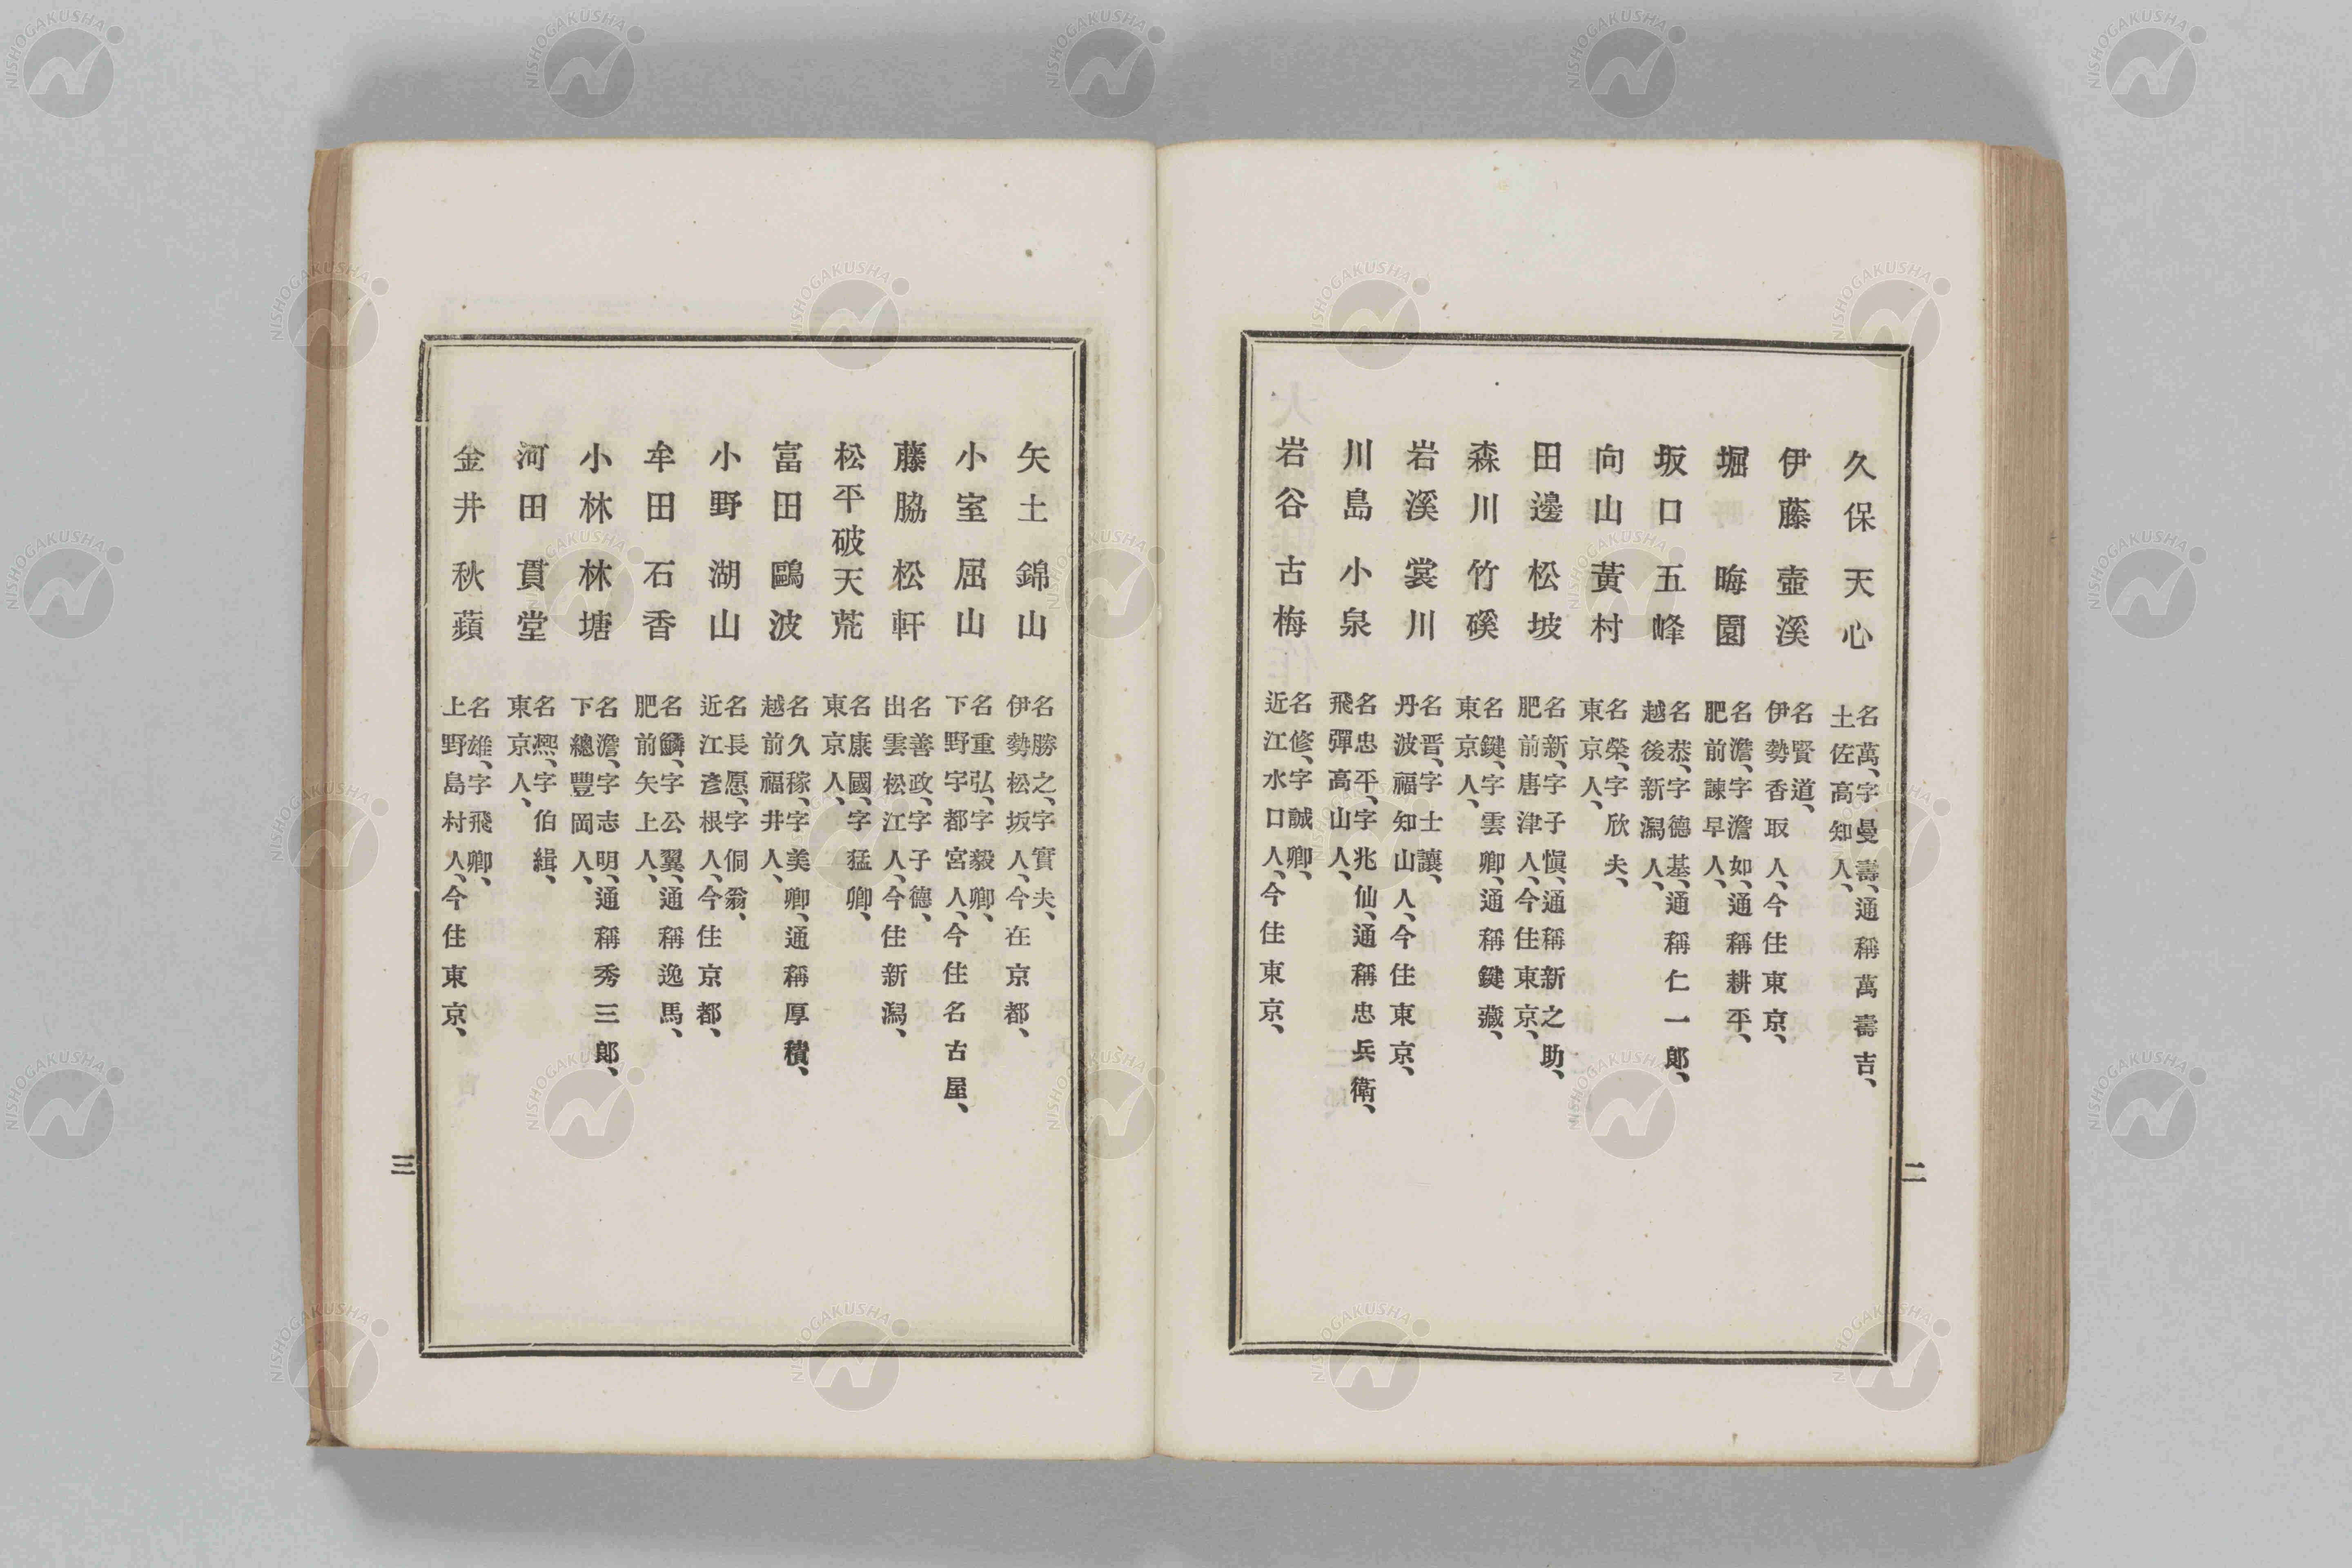 久保天心
名萬、字曼壽、通稱萬壽吉、
土佐高知人、
伊藤壺溪
名賢道、
伊勢香取人、今住東京、
堀晦園
名澹、字澹如、通稱耕平、
肥前諫早人、
坂口五峰
名恭、字德基、通稱仁一郎、
越後新潟人、
向山黃村
名榮、字欣夫、
東京人、
田邊松坡
名新、字子愼、通稱新之助、
肥前唐津人、今住東京、
森川竹磎
名鍵、字雲卿、通稱鍵藏、
東京人、
岩溪裳川
名晋、字士讓、
丹波福知山人、今住東京、
川島小泉
名忠平、字兆仙、通稱忠兵衛、
飛彈高山人、
岩谷古梅
名修、字誠卿、
近江水口人、今住東京、
二
矢土錦山
名勝之、字實夫、
伊勢松坂人、今在京都、
小室屈山
名重弘、字毅卿、
下野宇都宮人、今住名古屋、
藤脇松軒
名善政、字子德、
出雲松江人、今住新潟、
松平破天荒
名康國、字猛卿、
東京人、
富田鷗波
名久稼、字美卿、通稱厚積、
越前福井人、
小野湖山
名長愿、字侗翁、
近江彥根人、今住京都、
牟田石香
名麟、字公翼、通稱逸馬、
肥前矢上人、
小林林塘
名澹、字志明、通稱秀三郎、
下總豐岡人、
河田貫堂
名熙、字伯緝、
東京人、
金井秋蘋
名雄、字飛卿、
上野島村人、今住東京、
三
NISHOGAKUSHA